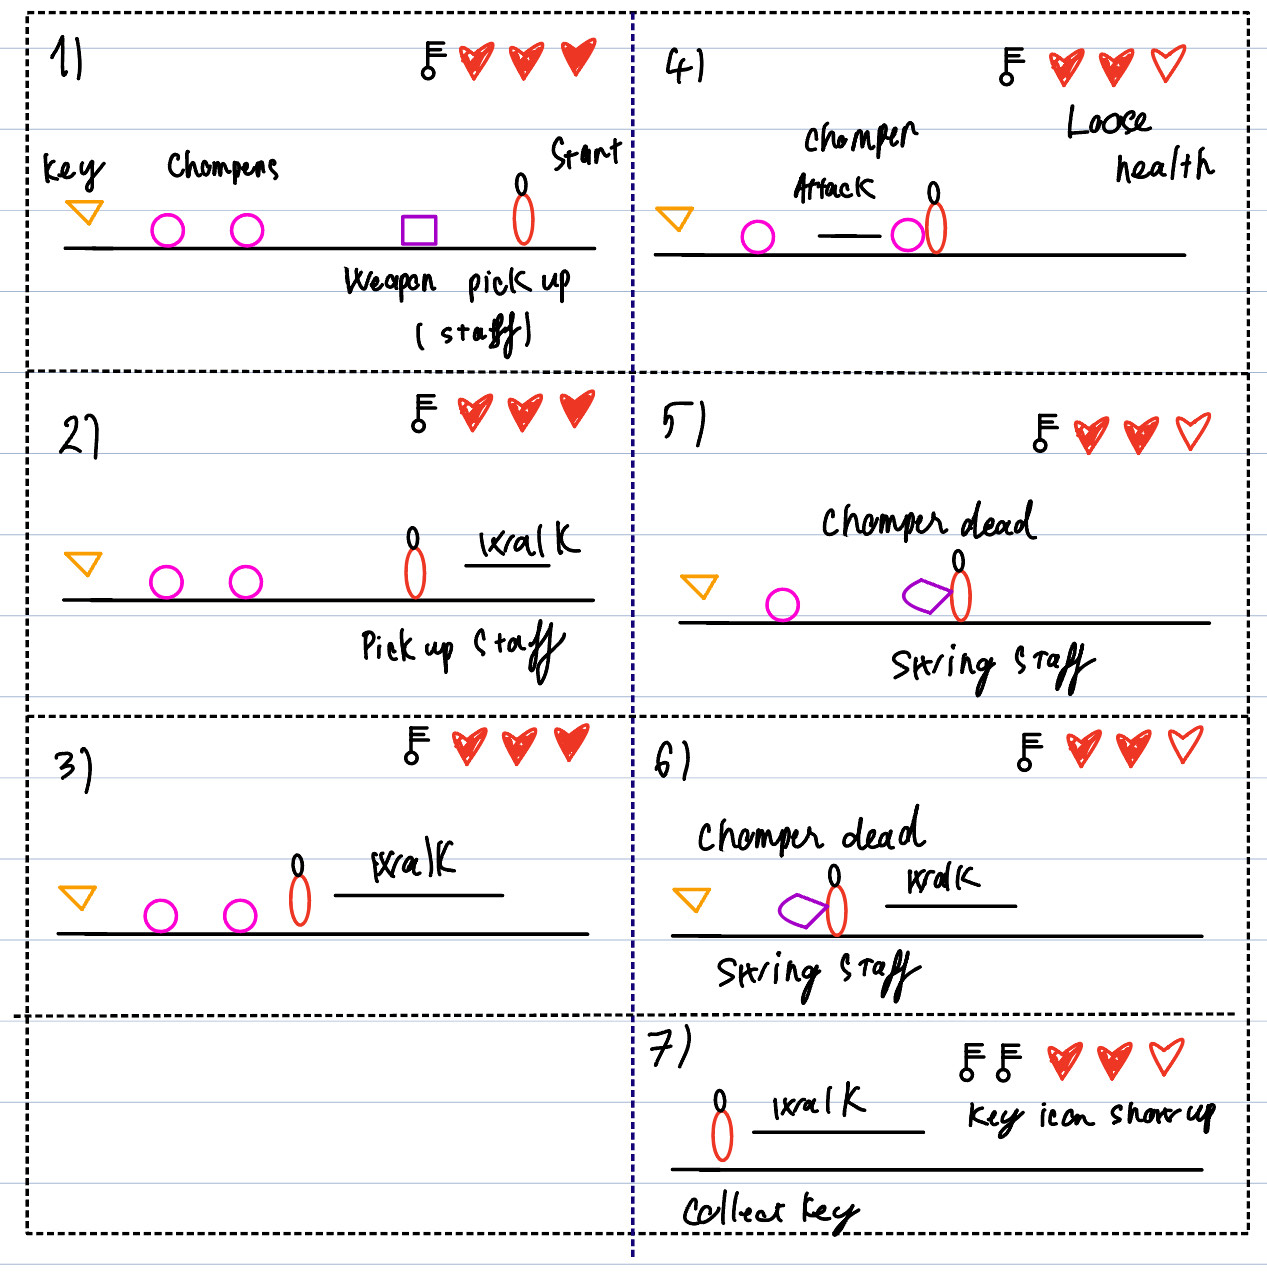 1)
Key
Chompers
Start
Weapon pick up
(staff)
2)
walk
Pick up staff
3)
walk
4)
Loose
health
Chomper
Attack
5)
Chomper dead
Swring staff
6)
Chomper dead
walk
Swring staff
7)
walk
Key icon show up
Collect key